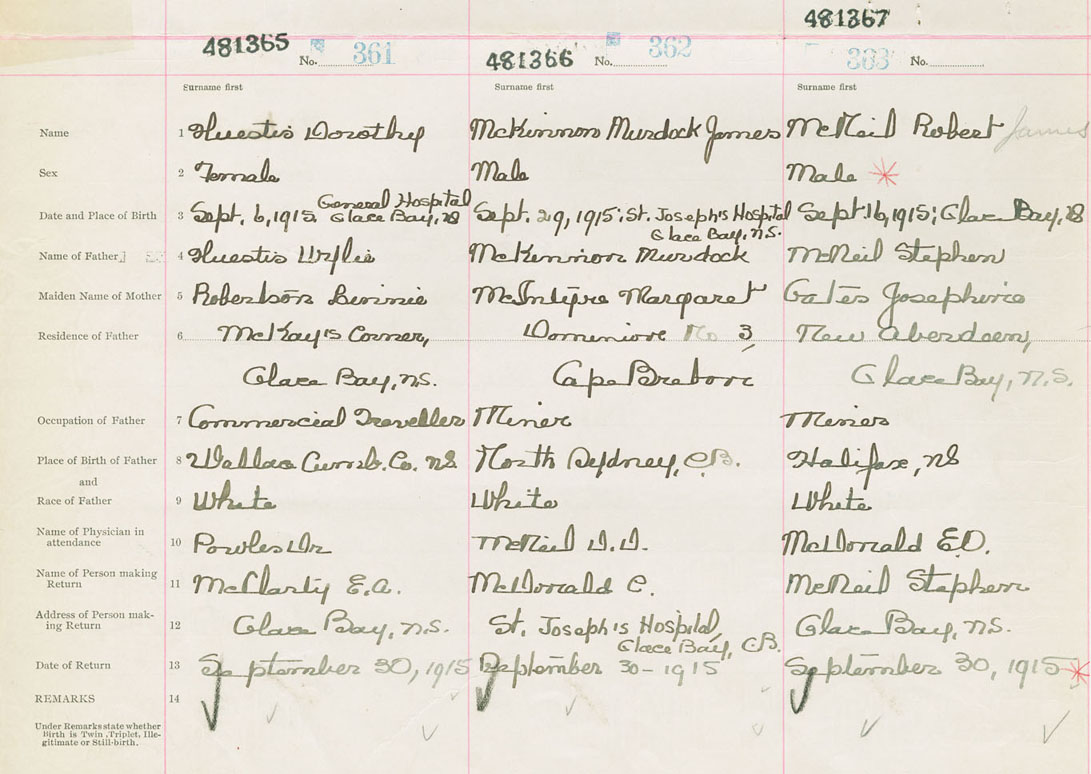 481367
481365 No. 361 481366 No. 362 363 No.
Surname first Surname first Surname first
Name 1 Huestis Dorothy McKinnon Murdock James McNeil Robert James
Sex 2 Female Male Male
Date and Place of Birth 3 Sept. 6, 1915. General Hospital Glace Bay, NS Sept. 29, 1915; St. Joseph's Hospital Glace Bay, N.S. Sept. 16, 1915; Glace Bay, NS
Name of Father 4 Huestis McKinnon Murdock McNeil Stephen
Maiden Name of Mother 5 Robertson Binnie McIntyre Margaret Gates Josephine
Residence of Father 6 McKay's Corner, Dominion No 3, New Aberdeen,
Glace Bay, N.S. Cape Breton Glace Bay, N.S.
Occupation of Father 7 Commercial Traveller Miner Miner
Place of Birth of Father 8 Wallace Cumb. Co. NS North Sydney, C.B. Halifax, NS
and
Race of Father 9 White White White
Name of Physician in
attendance 10 Powles Dr McNeil D.D. McDonald E.D.
Name of Person making
Return 11 McClarty E.A. McDonald C. McNeil Stephen
Address of Person mak-
ing Return 12 Glace Bay, N.S. St. Joseph's Hospital, Glace Bay, C.B. Glace Bay, N.S.
Date of Return 13 September 30, 1915 September 30 - 1915 September 30, 1915
REMARKS 14
Under Remarks state whether
Birth is Twin, Triplet, Ille-
gitimate or Still-birth.